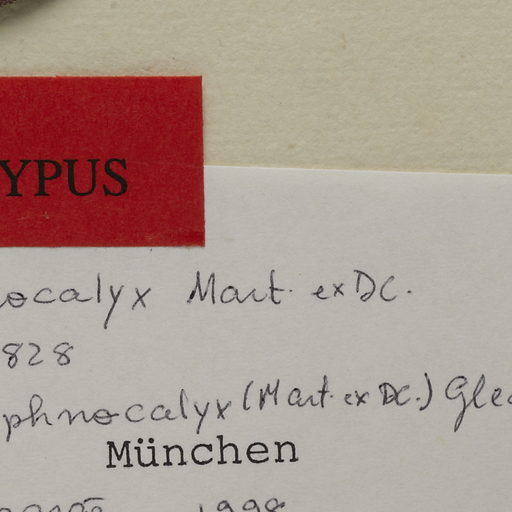 YPUS
ocalyx Mart. ex DC.
828
phnocalyx (Mart. ex DC.) Glea
München
1998